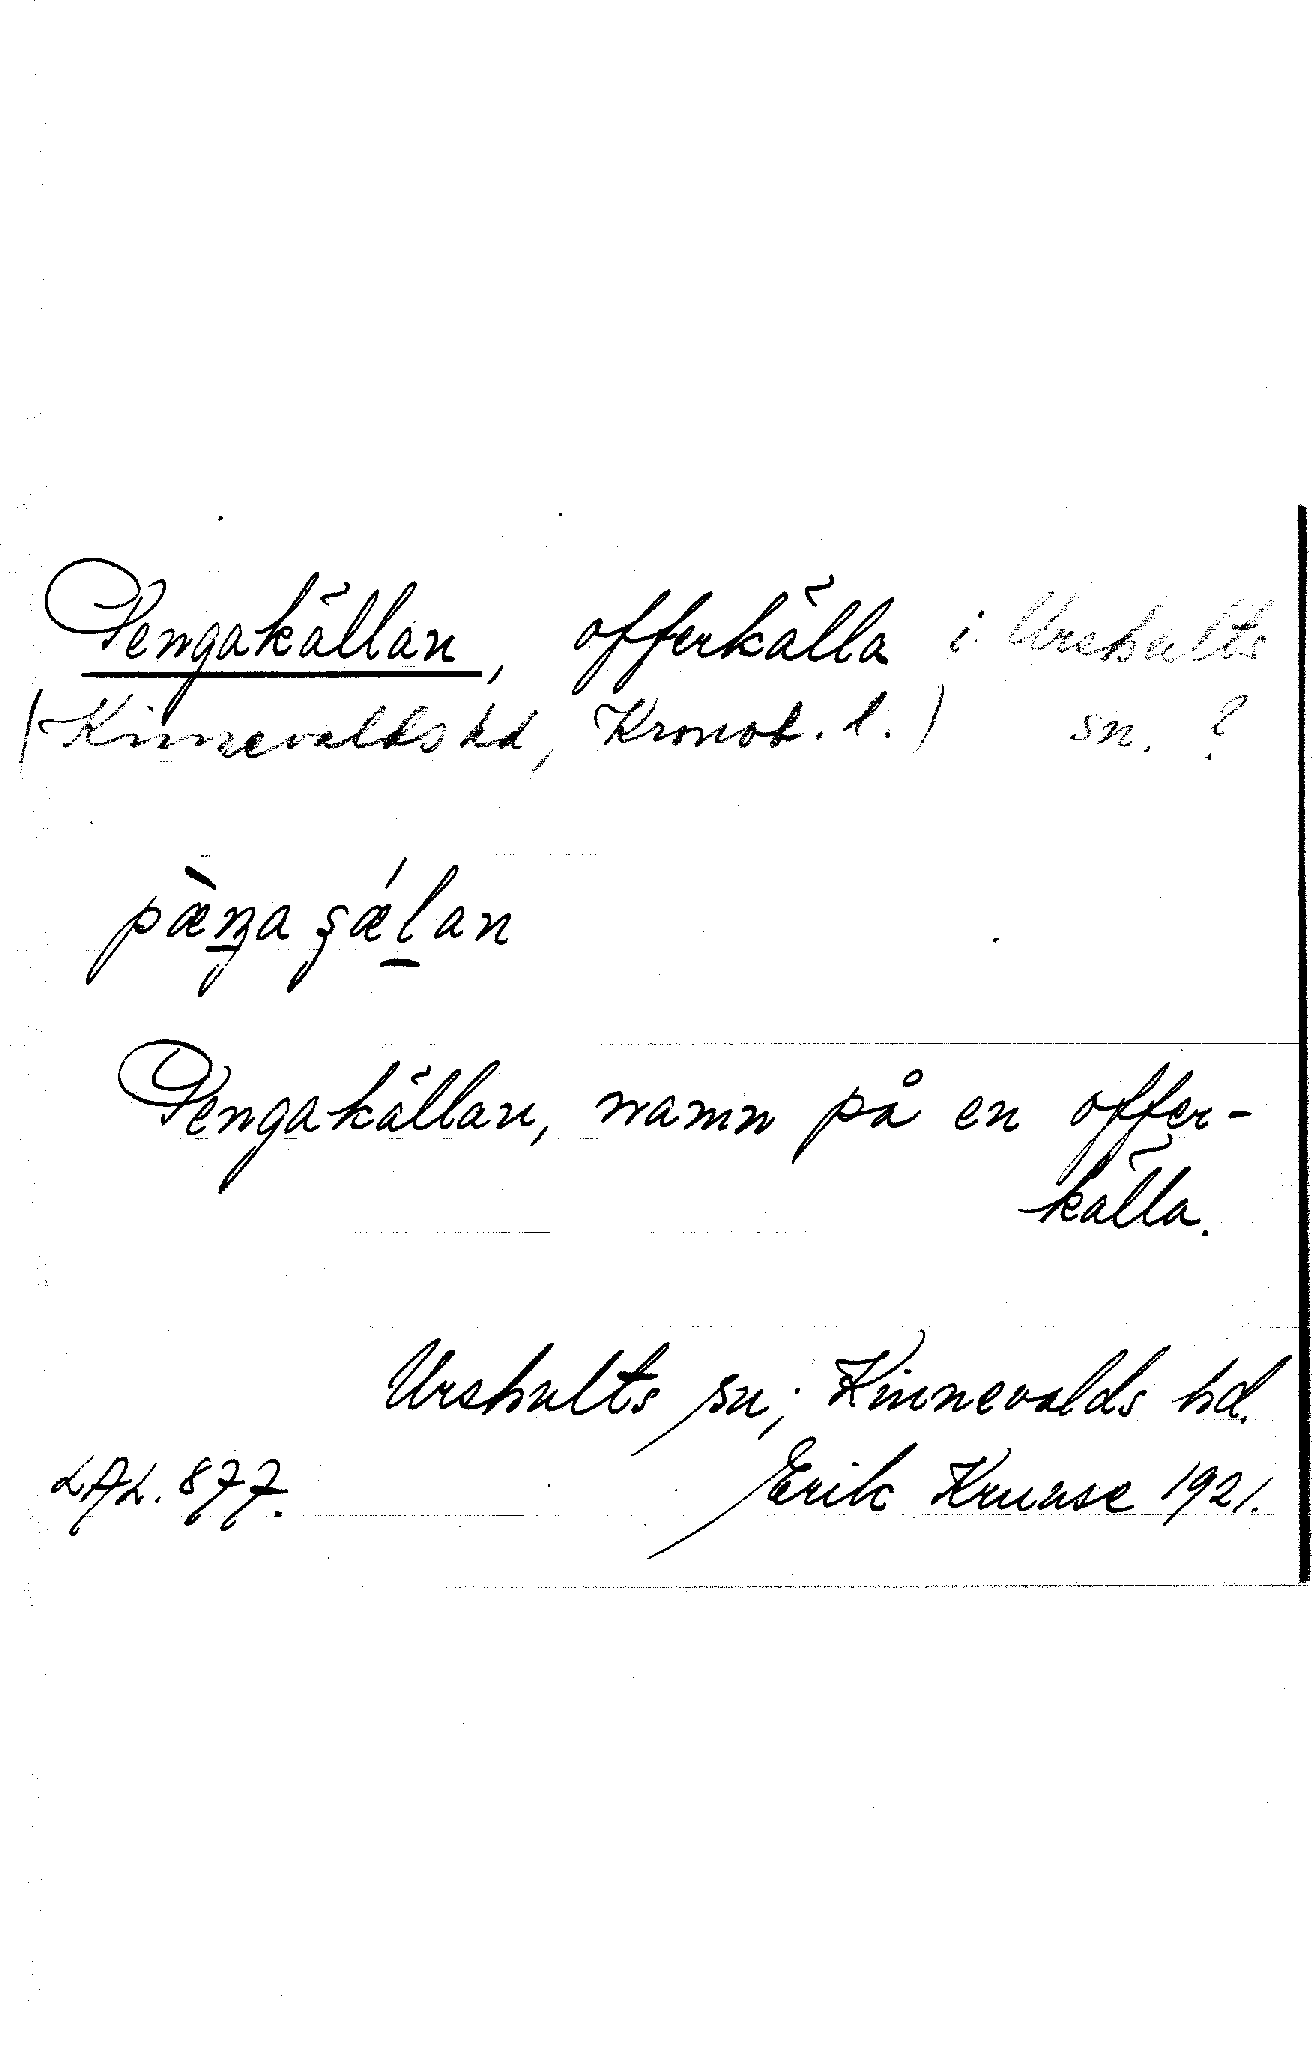 Pengakällan, offerkälla i Urshults
(Kinnevalds hd, Kronob. l.) sn. ?
Pengakällan, namn på en offer-
källa.
Urshults sn; Kinnevalds hd.
LAL. 877. Erik Kruuse 1921.